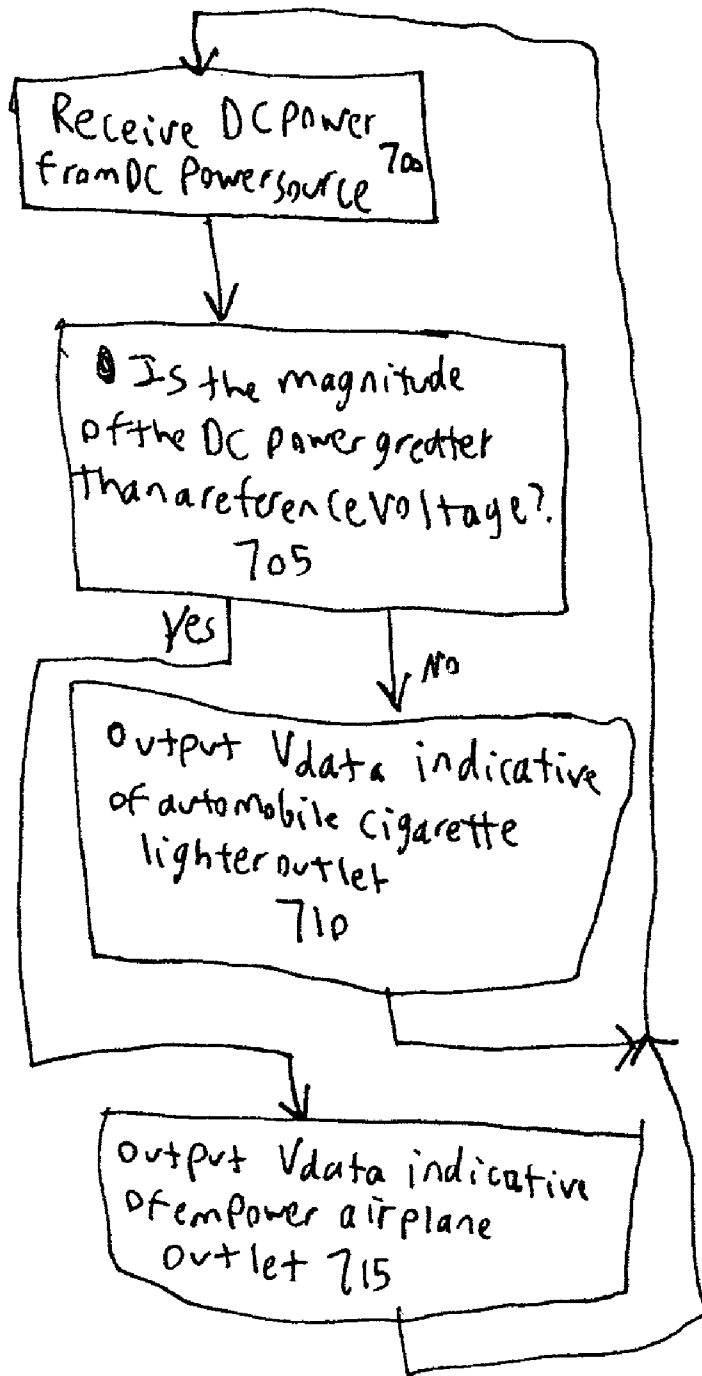 Receive DC power
from DC Power source 700
Is the magnitude
of the DC power greatter
than a reference voltage?
705
Yes
No
Output Vdata indicative
of automobile cigarette
lighter outlet
710
Output Vdata indicative
of empower airplane
outlet 715